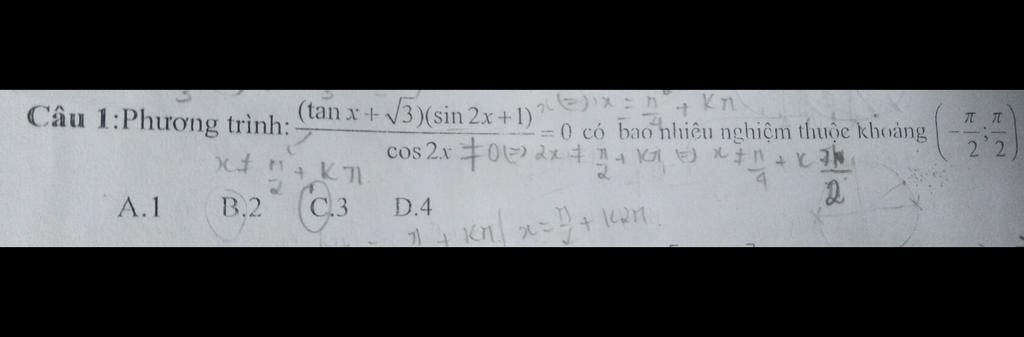 Câu 1:Phương trình: (tan x + √3)(sin 2x + 1) / cos 2x = 0 có bao nhiêu nghiệm thuộc khoảng (-π/2; π/2)
≠ 0 (=) 2x ≠ π/2 + kπ (=) x ≠ π/4 + k
x ≠ π/2 + kπ
A.1 B.2 C.3 D.4